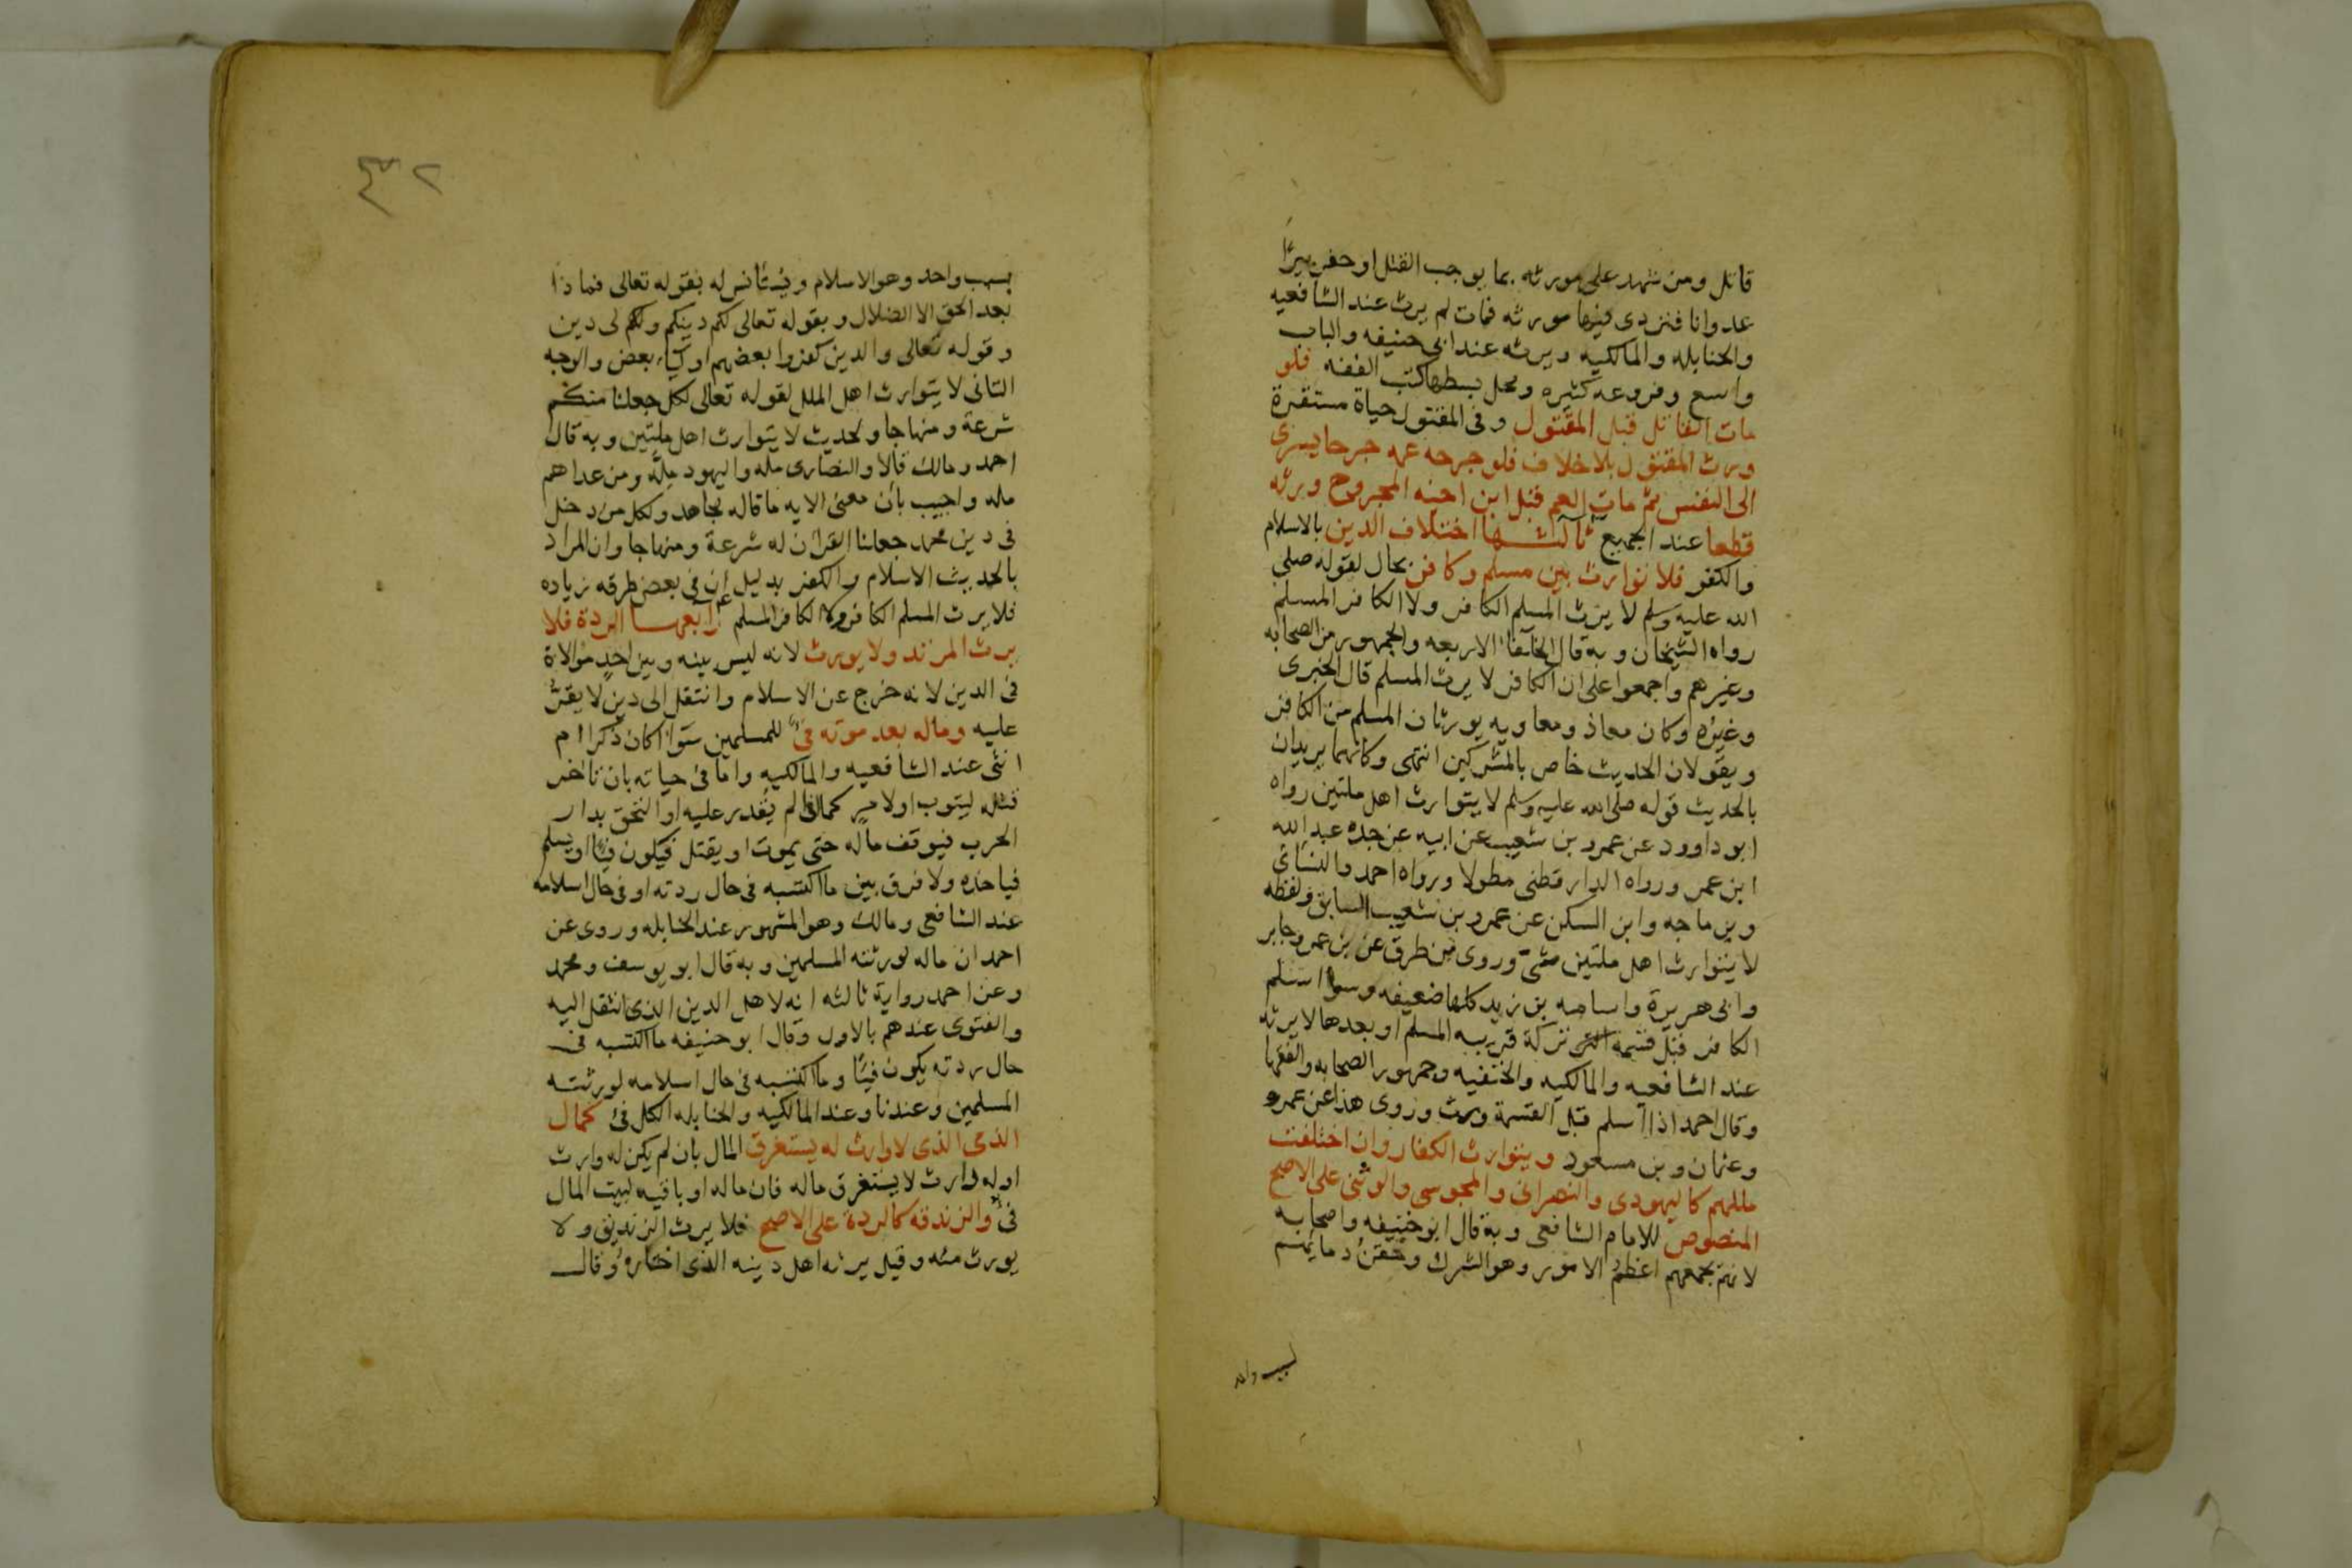 قاتل ومن شهد على مورثه بما يوجب القتل او حفر بيرًا
عدوانا فتردى فيها مورثه فمات لم يرث عند الشافعيه
والحنابله والمالكيه ويرثه عند ابى حنيفه والباب
واسع وفروعه كثيره ومحل بسطها كتب الفقه فلو
مات القاتل قبل المقتول وفى المقتول حياة مستقرة
ورث المقتول بلا خلاف فلو جرحه عمه جرحا يسرى
الى النفس ثم مات العم قبل ابن اخيه المجروح ورثه
قطعا عند الجميع ثالثها اختلاف الدين بالاسلام
والكفر فلا توارث بين مسلم وكافر بحال لقوله صلى
الله عليه وسلم لا يرث المسلم الكافر ولا الكافر المسلم
رواه الشيخان وبه قال الخلفا الاربعه والجمهور من الصحابه
وغيرهم واجمعوا على ان الكافر لا يرث المسلم قال الخبرى
وغيره وكان معاذ ومعاويه يورثان المسلم من الكافر
ويقولان الحديث خاص بالمشركين انتهى وكانهما يريدان
بالحديث قوله صلى الله عليه وسلم لا يتوارث اهل ملتين رواه
ابو داوود عن عمرو بن شعيب عن ابيه عن جده عبد الله
ابن عمر ورواه الدارقطنى مطولا ورواه احمد والنسائى
وبن ماجه وابن السكن عن عمرو بن شعيب السابق ولفظه
لا يتوارث اهل ملتين شتى وروى من طرق عن بن عمر وجابر
وابى هريرة واسامه بن زيد كلها ضعيفه وسوا اسلم
الكافر قبل قسمة تركة قريبه المسلم او بعدها لا يرثه
عند الشافعيه والمالكيه والحنفيه وجمهور الصحابه والفقها
وقال احمد اذا اسلم قبل القسمة ورث وروى هذا عن عمر
وعثمان وبن مسعود ويتوارث الكفار وان اختلفت
مللهم كاليهودى والنصرانى والمجوسى والوثنى على الاصح
المنصوص للامام الشافعى وبه قال ابو حنيفه واصحابه
لانهم بجمعهم اعظم الامور وهو الشرك وحقن دمايهم
لسبب واحد
٣٢
بسبب واحد وهو الاسلام ويستأنس له بقوله تعالى فماذا
بعد الحق الا الضلال وبقوله تعالى لكم دينكم ولى دين
وقوله تعالى والدين كفروا بعضهم اولياء بعض والوجه
الثانى لا يتوارث اهل الملل لقوله تعالى لكل جعلنا منكم
شرعة ومنهاجا ولحديث لا يتوارث اهل ملتين وبه قال
احمد ومالك قالا والنصارى مله واليهود مله ومن عداهم
مله واجيب بأن معنى الايه ما قاله مجاهد ولكل من دخل
فى دين محمد جعلنا القران له شرعة ومنهاجا وان المراد
بالحديث الاسلام والكفر بدليل ان فى بعض طرقه زياده
فلا يرث المسلم الكافر ولا الكافر المسلم رابعها الردة فلا
يرث المرتد ولا يورث لانه ليس بينه وبين احد موالاة
فى الدين لانه خرج عن الاسلام وانتقل الى دين لا يقر
عليه وماله بعد موته فئ للمسلمين سوا اكان ذكرا ام
انثى عند الشافعيه والمالكيه واما فى حياته بان تاخر
قتله ليتوب اولا لم يقدر عليه او التحق بدار
الحرب فيوقف ماله حتى يموت او يقتل فيكون فيئا او يسلم
فياخذه ولا فرق بين ما اكتسبه فى حال ردته او فى حال اسلامه
عند الشافعى ومالك وهو المشهور عند الحنابله وروى عن
احمد ان ماله لورثته المسلمين وبه قال ابو يوسف ومحمد
وعن احمد رواية ثالثه انه لاهل الدين الذى انتقل اليه
والفتوى عندهم بالاول وقال ابو حنيفه ما اكتسبه فى
حال ردته يكون فيئا وما اكتسبه فى حال اسلامه لورثته
المسلمين وعندنا وعند المالكيه والحنابله الكل فئ كمال
الذمى الذى لا وارث له يستغرق المال بان لم يكن له وارث
او له وارث لا يستغرق ماله فان ماله او باقيه لبيت المال
فئ والزندقه كالردة على الاصح فلا يرث الزنديق ولا
يورث منه وقيل يرثه اهل دينه الذى اختاره وقال